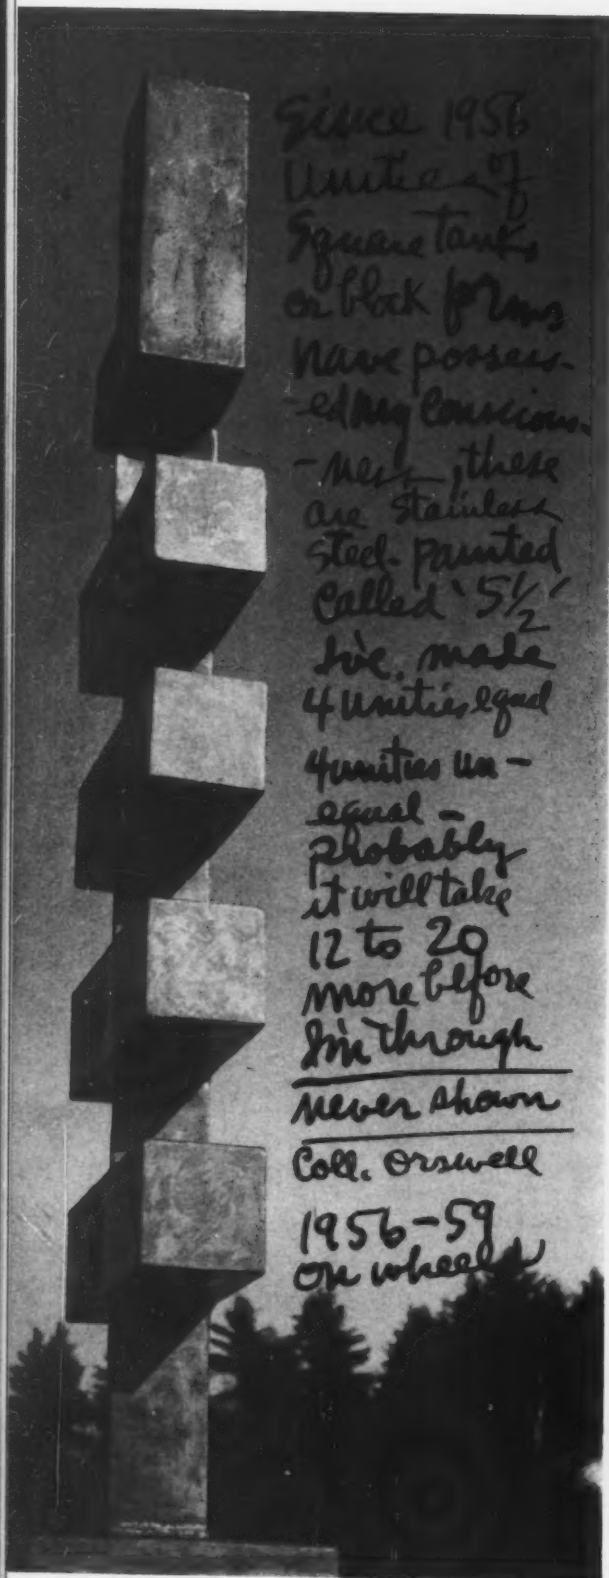 Since 1956
Unities of
Square Tanks
or block forms
have possess-
-ed my conscious-
-ness, these
are stainless
steel- painted
Called '5½'
I've, made
4 unities equal
4 unities un-
equal -
probably
it will take
12 to 20
more before
I'm through
never shown
Coll. Orswell
1956-59
on wheels